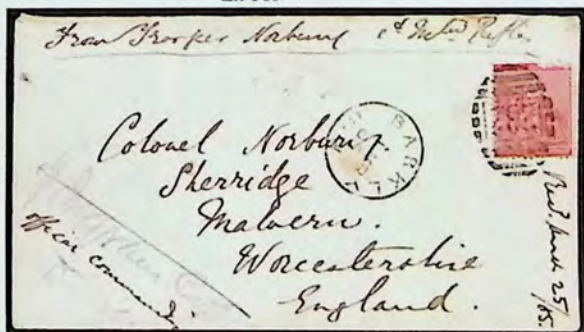 From Trooper Norbury 1st Mtd Rifles
BARKLY
Colonel Norbury
Sherridge
Malvern.
Worcestershire
England.
officer commanding
Recd. March 25/85